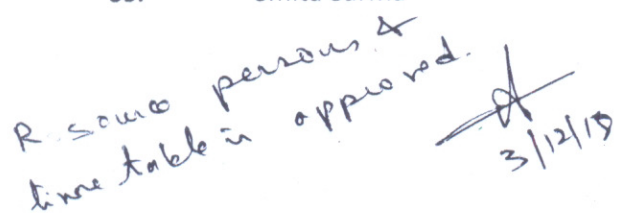 R. source persons &
time table is approved.
3/12/18